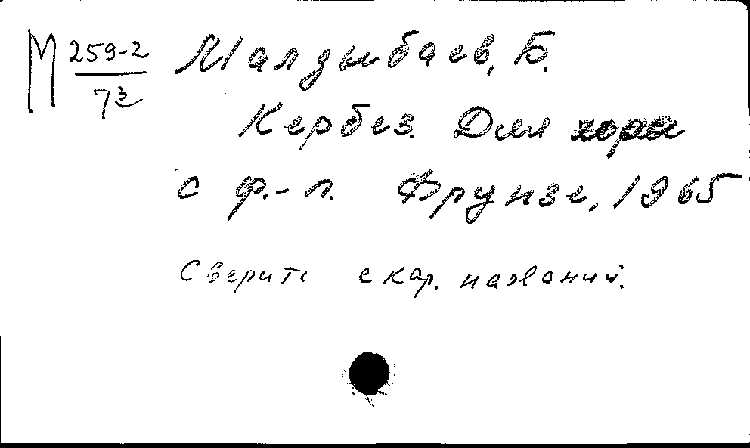 М 259-2
7³
Малдыбаев, Б.
Кербез. Для хора
с ф.-п. Фрунзе, 1965
Сверить с кар. названий.